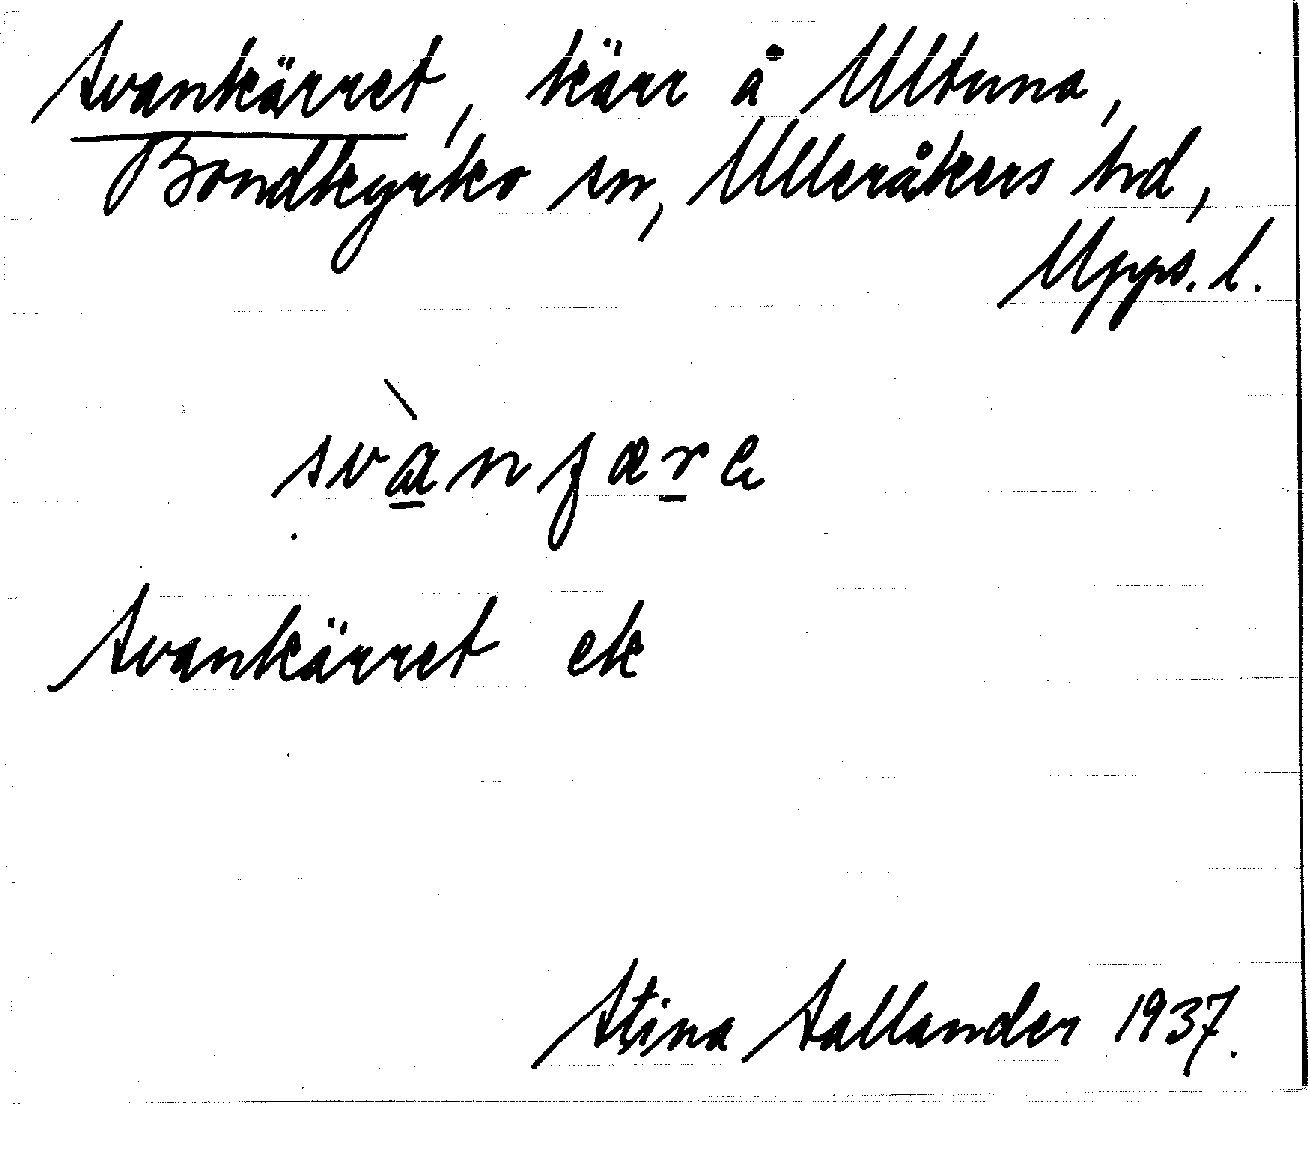 Svankärret, kärr å Ultuna,
Bondkyrko sn, Ulleråkers hd,
Upps. l.
svànfære
Svankärret ek
Stina Sallander 1937.